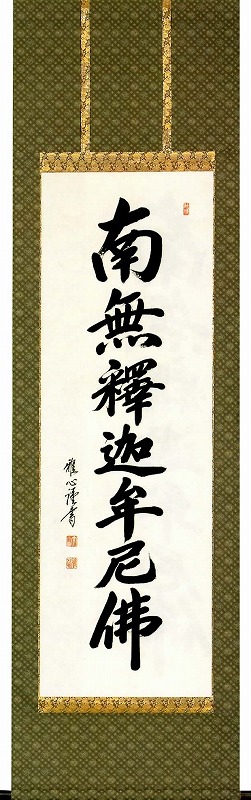 南無釋迦牟尼佛
雅心謹書